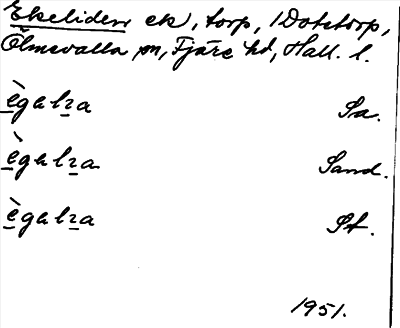 Ekeliden ek, torp, 1 Dotetorp,
Ölmevalla sn, Fjäre hd, Hall. l.
ègalɿa Sa.
ègalɿa Sand.
ègalɿa St.
1951.